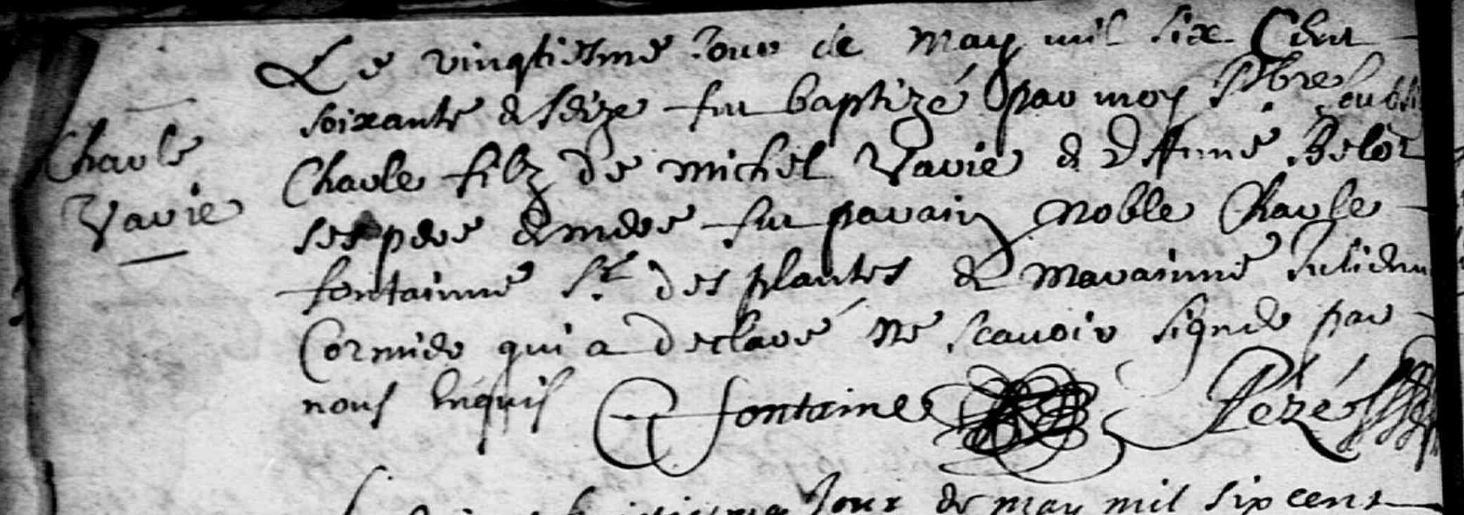 Charle
Vavie
Le vingtiesme Jour de may mil six Cent
soixante & seize fut baptizé par moy
Charle filz de michel Vavie & d'Anne Belot
ses pere & mere fut parain Noble Charle
fontainne Sr. des plantes & marainne Julienne
Cormier qui a declaré ne scavoir signer par
nous Enquis C fontaine Pézé
Jour de may mil six cent